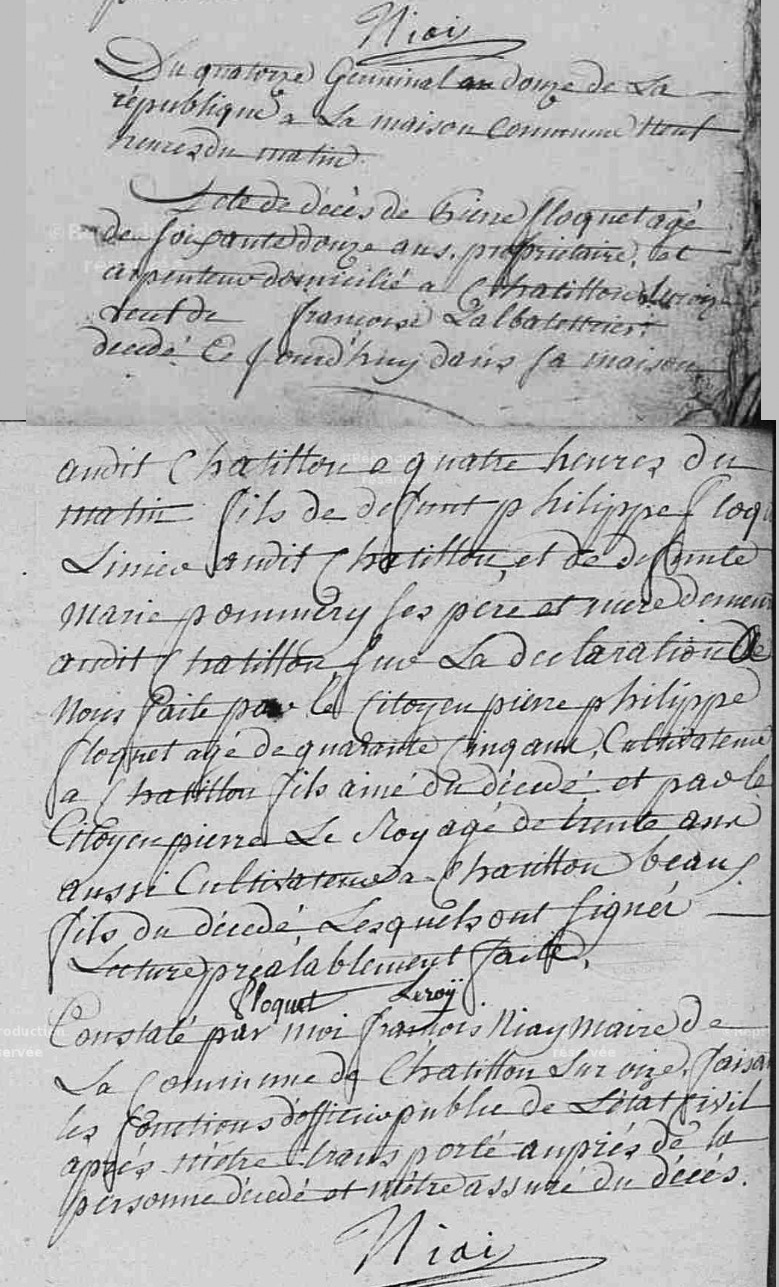 Niai
Du quatorze Germinal an douze de La
république a La maison Commune Neuf
heures du matin.
Acte de décès de Pierre floquet agé
de soixante douze ans, propriétaire, et
arpenteur domicilié a Chatillon sur oize
veuf de francoise Lalbalettrier
décédé Ce jourd'huy dans sa maison
audit Chatillon a quatre heures du
matin fils de defunt philippe floq
audit Chatillon, et de defunte
marie pommery ses père et mere demeur
audit Chatillon sur La declaration de
nous faite par le Citoyen pierre philippe
floquet agé de quarante Cinq ans, Cultivateur
a Chatillon fils ainé du décédé et par le
Citoyen pierre Le Roy agé de trente ans
aussi Cultivateur a Chatillon beaux
fils du décédé Lesquels ont signér
Lecture préalablement faite,
floquet Leroÿ
Constaté par moi francois Niay Maire de
La Commune de Chatillon Sur oize, faisa
les fonctions d'officier public de L'état Civil
aprés m'être transporté auprés de la
personne décedé et m'être assuré du décés.
Niai